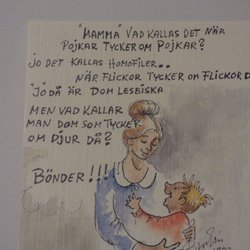 "MAMMA" VAD KALLAS DET NÄR
POJKAR TYCKER OM POJKAR?
JO DET KALLAS HOMOFILER..
NÄR FLICKOR TYCKER OM FLICKOR DÅ
JO DÅ ÄR DOM LESBISKA.
MEN VAD KALLAR
MAN DOM SOM TYCKER
OM DJUR DÅ?
BÖNDER!!!